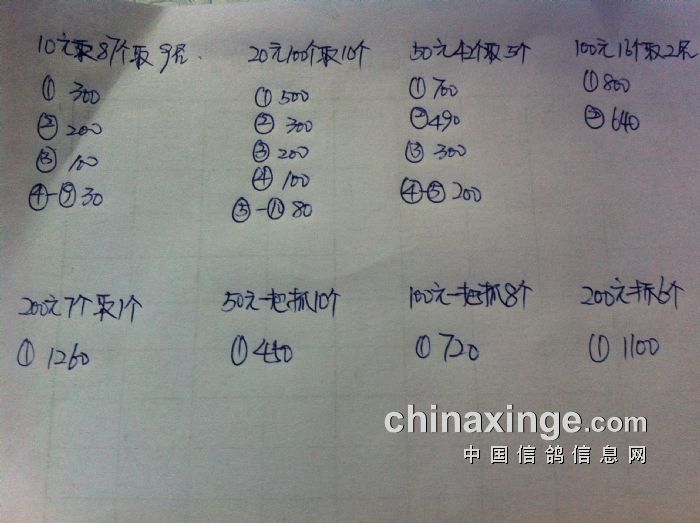 10元取87个取9名.
① 300
② 200
③ 100
④-⑨ 30
20元100个取10个
① 500
② 300
③ 200
④ 100
⑤-⑩ 80
50元42个取5个
① 700
② 490
③ 300
④-⑤ 200
100元16个取2名
① 800
② 640
200元7个取1个
① 1260
50元一把抓10个
① 450
100元一把抓8个
① 720
200元一抓6个
① 1100
chinaxinge.com
中国信鸽信息网